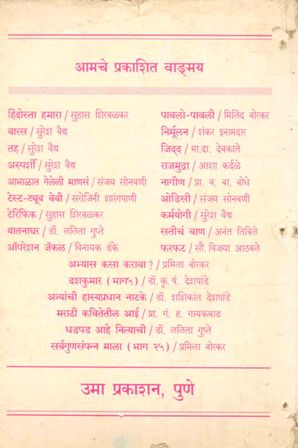 आमचे प्रकाशित वाङ्मय
हिंदोस्ता हमारा / सुहास शिरवळकर
वारस / सुरेश वैद्य
तह / सुरेश वैद्य
अस्पर्शी / सुरेश वैद्य
आभाळात गेलेली माणसं / संजय सोनवणी
टेस्ट-ट्यूब बेबी / सरोजिनी शारंगपाणी
टेरिफिक / सुहास शिरवळकर
यातनाघर / डॉ. ललिता गुप्ते
ऑपरेशन जॅकल / विनायक डंके
पावलो-पावली / मिलिंद बोरकर
निर्मूलन / शंकर इनामदार
जिद्द / मा.दा. देवकाते
राजमुद्रा / आशा कर्दळे
नागीण / प्रा. व. बा. बोधे
ओडिसी / संजय सोनवणी
कर्मयोगी / सुरेश वैद्य
सतीचं वाण / अनंत तिबिले
फरफट / सौ. विजया आठवले
अभ्यास कसा करावा ? / प्रमिला बोरकर
दशकुमार (भाग५) / डॉ. कृ. पं. देशपांडे
अत्र्यांची हास्यप्रधान नाटके / डॉ. शशिकांत देशपांडे
मराठी कवितेतील आई / प्रा. गं. ह. गायकवाड
धडपड आहे नित्याची / डॉ. ललिता गुप्ते
सर्वगुणसंपन्न माला (भाग २५) / प्रमिला बोरकर
उमा प्रकाशन, पुणे